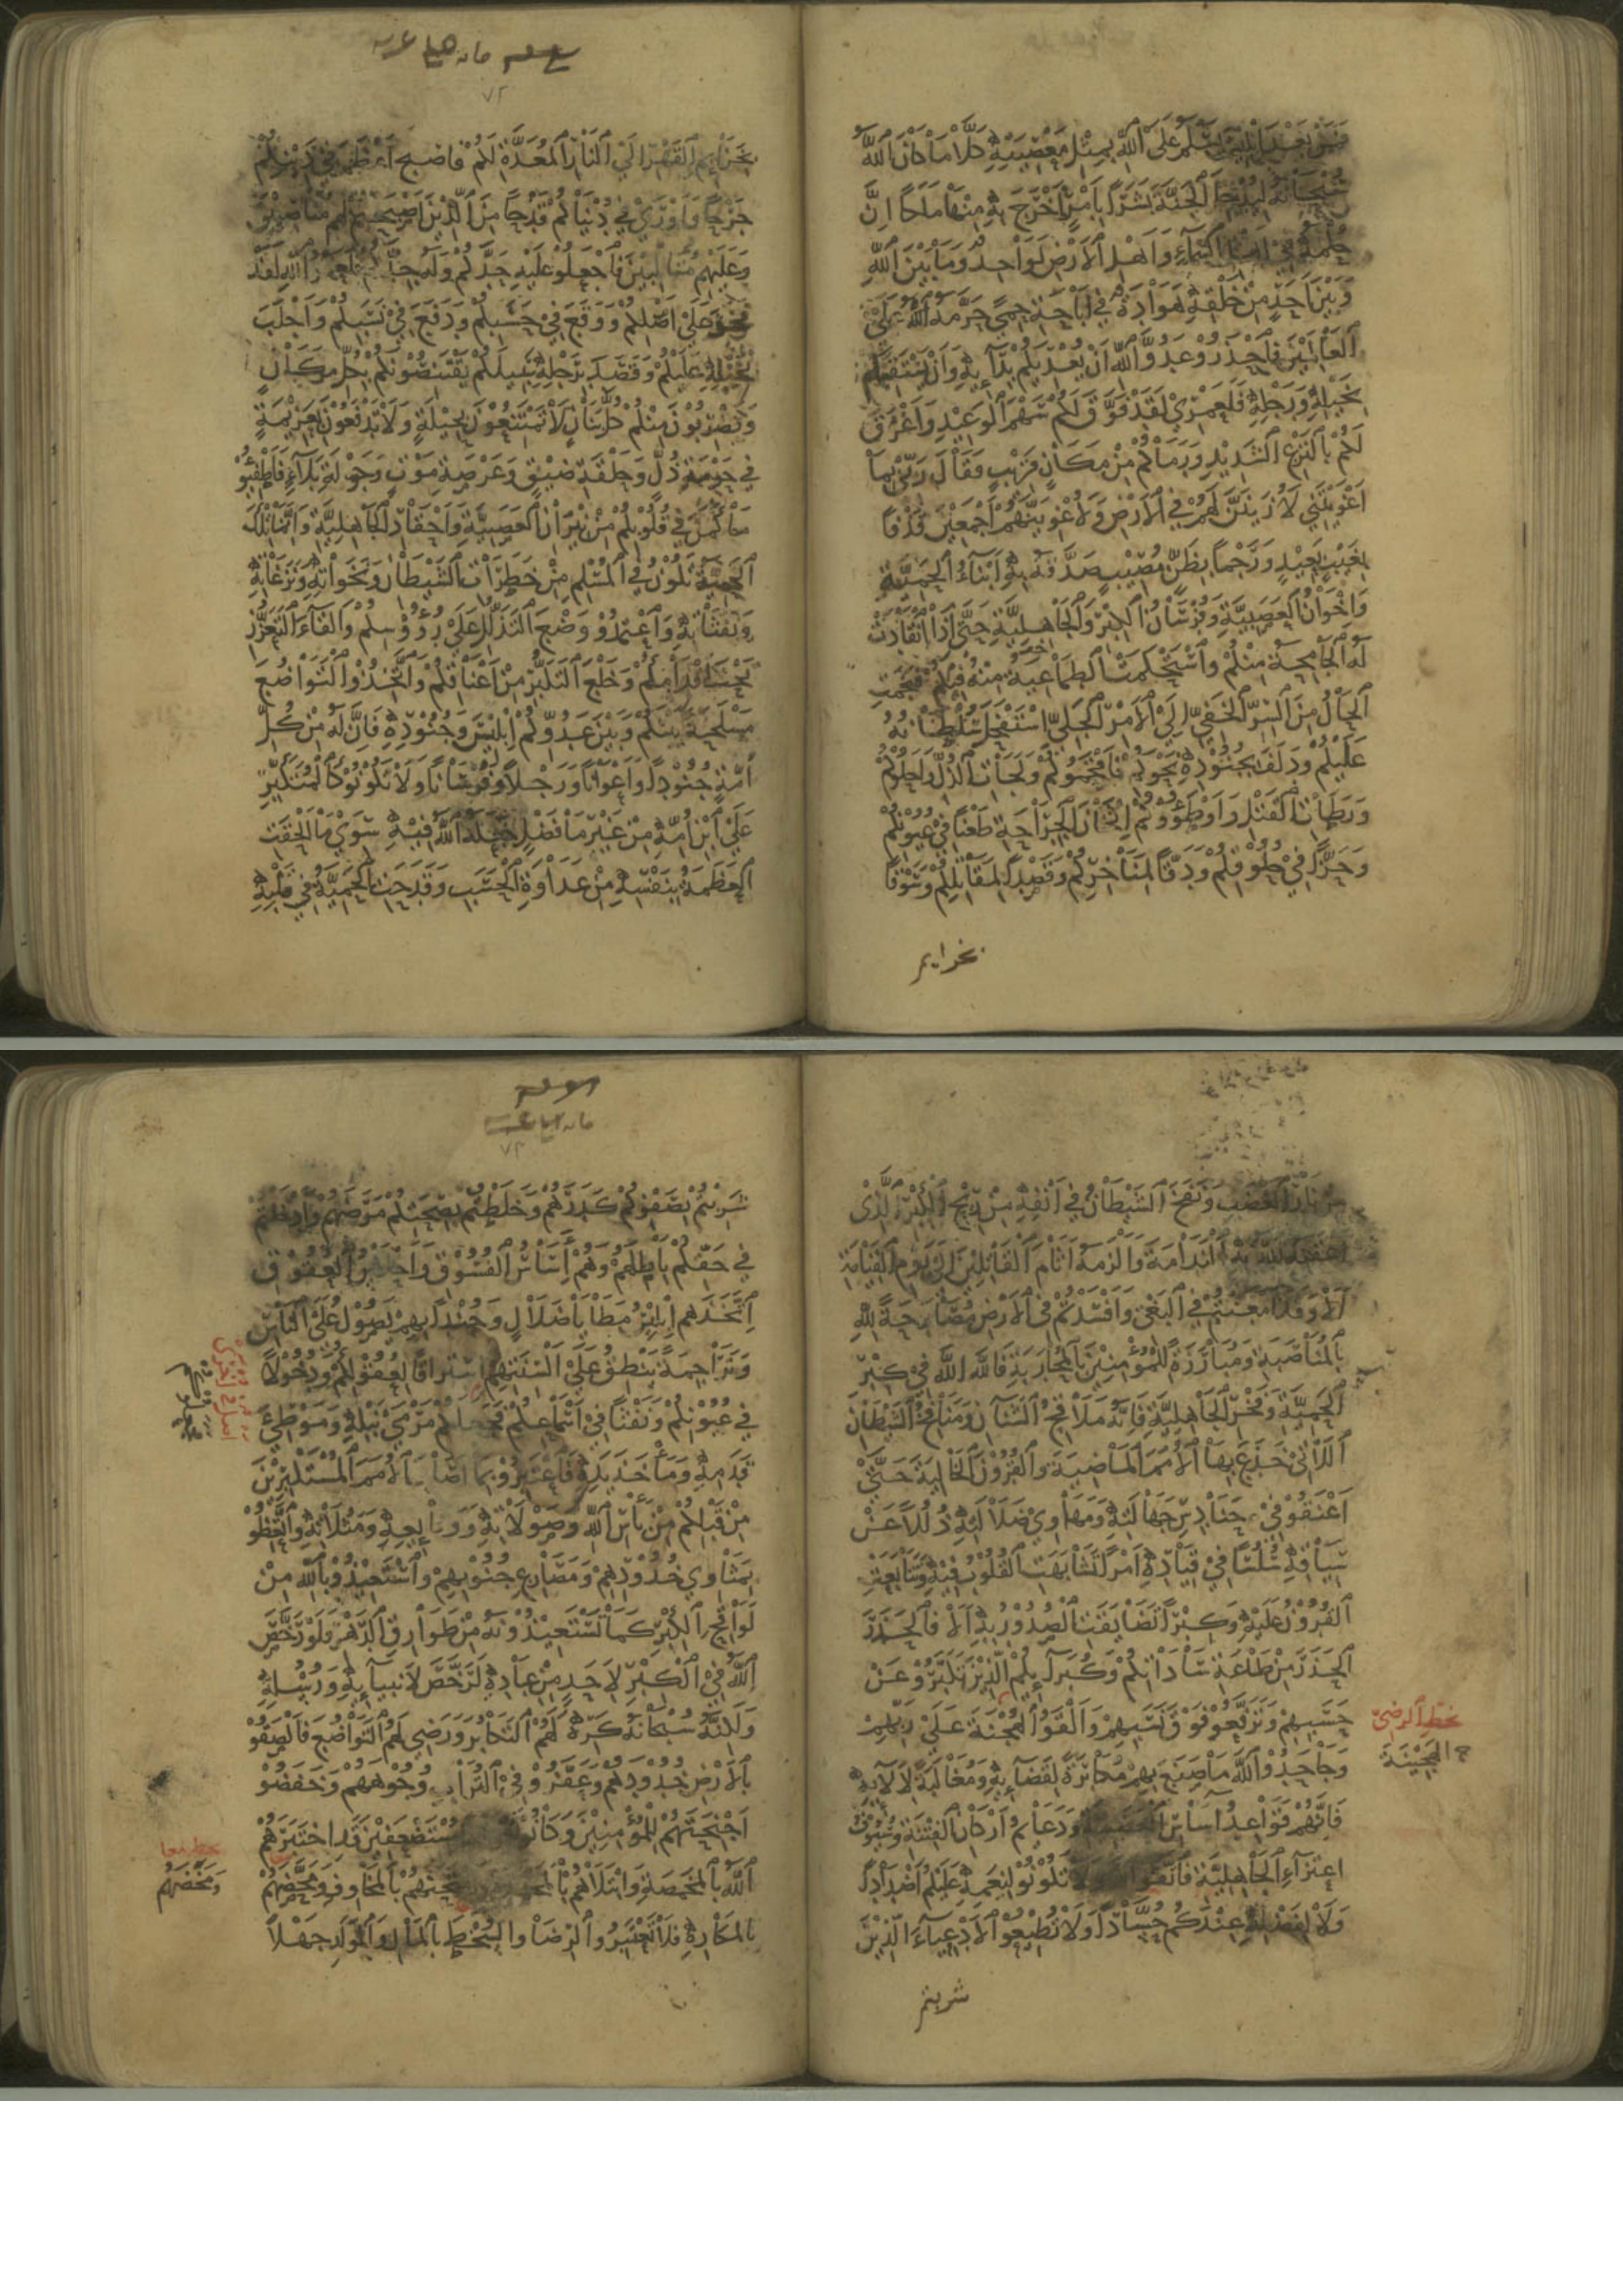 فمن بعد ابليس يسلم على الله بمثل معصيته كلا ما كان الله
سبحانه ليدخل الجنة بشرا بامر اخرج به منها ملكا ان
حكمه في اهل السماء واهل الارض لواحد وما بين الله
وبين احد من خلقه هوادة في اباحة حمى حرمه الله على
العالمين فاحذروا عدو الله ان يعديكم بدائه وان يستفزكم
بخيله ورجله فلعمري لقد فوق لكم سهم الوعيد واغرق
لكم بالنزع الشديد ورماكم من مكان قريب وقال رب بما
اغويتني لازينن لهم في الارض ولاغوينهم اجمعين قذفا
بغيب بعيد ورجما بظن مصيب صدقه به ابناء الحمية
واخوان العصبية وفرسان الكبر والجاهلية حتى اذا انقادت
له الجامحة منكم واستحكمت الطماعية منه فيكم فنجمت
الحال من السر الخفي الى الامر الجلي استفحل سلطانه
عليكم ودلف بجنوده نحوكم فاقحموكم ولجات الذل واحلوكم
ورطات القتل واوطؤوكم اثخان الجراحة طعنا في عيونكم
وحزا في حلوقكم ودقا لمناخركم وقصدا لمقاتلكم وسوقا
بخزايم
٧٢
بخزايم القهر الى النار المعدة لكم فاصبح اعظم في دينكم
جرحا واورى في دنياكم قدحا من الذين اصبحتم لهم مناصبين
وعليهم متالبين فاجعلوا عليه حدكم وله جدكم فلعمر الله لقد
فخر على اصلكم ووقع في حسبكم ودفع في نسبكم واجلب
بخيله عليكم وقصد برجله سبيلكم يقتنصونكم بكل مكان
ويضربون منكم كل بنان لا تمتنعون بحيلة ولا تدفعون بعزيمة
في حومة ذل وحلقة ضيق وعرصة موت وجولة بلاء فاطفئوا
ما كمن في قلوبكم من نيران العصبية واحقاد الجاهلية وانما تلك
الحمية تكون في المسلم من خطرات الشيطان ونخواته ونزغاته
ونفثاته واعتمدوا وضع التذلل على رؤوسكم والقاء التعزز
تحت اقدامكم وخلع التكبر من اعناقكم واتخذوا التواضع
مسلحة بينكم وبين عدوكم ابليس وجنوده فان له من كل
امة جنودا واعوانا ورجلا وفرسانا ولا تكونوا كالمتكبر
على ابن امه من غير ما فضل جعله الله فيه سوى ما الحقت
العظمة بنفسه من عداوة الحسب وقدحت الحمية في قلبه
من نار الغضب ونفخ الشيطان في انفه من ريح الكبر الذي
اعقبه الله به الندامة والزمه اثام القاتلين الى يوم القيامة
الا وقد امعنتم في البغي وافسدتم في الارض مصارحة لله
بالمناصبة ومبارزة للمؤمنين بالمحاربة فالله الله في كبر
الحمية وفخر الجاهلية فانه ملاقح الشنآن ومنافخ الشيطان
اللاتي خدع بها الامم الماضية والقرون الخالية حتى
اعنقوا في حنادس جهالته ومهاوي ضلالته ذللا عن
سياقه سلسا في قياده امرا تشابهت القلوب فيه وتتابعت
القرون عليه وكبرا تضايقت الصدور به الا فالحذر
الحذر من طاعة ساداتكم وكبرائكم الذين تكبروا عن
حسبهم وترفعوا فوق نسبهم والقوا الهجنة على ربهم
بخط الرضي
الهجينة
وجاحدوا الله ما صنع بهم مكابرة لقضائه ومغالبة لآلائه
فانهم قواعد اساس العصبية ودعائم اركان الفتنة وسيوف
اعتزاء الجاهلية فاتقوا الله ولا تكونوا لنعمه عليكم اضدادا
ولا لفضله عندكم حسادا ولا تطيعوا الادعياء الذين
شربتم
٧٣
شربتم بصفوكم كدرهم وخلطتم بصحتكم مرضهم وادخلتم
في حقكم باطلهم وهم اساس الفسوق واحلاس العقوق
اتخذهم ابليس مطايا ضلال وجندا بهم يصول على الناس
وتراجمة ينطق على السنتهم استراقا لعقولكم ودخولا
في عيونكم ونفثا في اسماعكم فجعلكم مرمى نبله وموطئ
قدمه ومأخذ يده فاعتبروا بما اصاب الامم المستكبرين
من قبلكم من بأس الله وصولاته ووقائعه ومثلاته واتعظوا
بمثاوي خدودهم ومصارع جنوبهم واستعيذوا بالله من
لواقح الكبر كما تستعيذونه من طوارق الدهر فلو رخص
الله في الكبر لاحد من عباده لرخص لانبيائه ورسله
ولكنه سبحانه كره لهم التكابر ورضي لهم التواضع فالصقوا
بالارض خدودهم وعفروا في التراب وجوههم وخفضوا
اجنحتهم للمؤمنين وكانوا مستضعفين قد اختبرهم
الله بالمخمصة وابتلاهم بالمجهدة وامتحنهم بالمخاوف ومحصهم
ومخضهم
بالمكاره فلا تعتبروا الرضا والسخط بالمال والولد جهلا